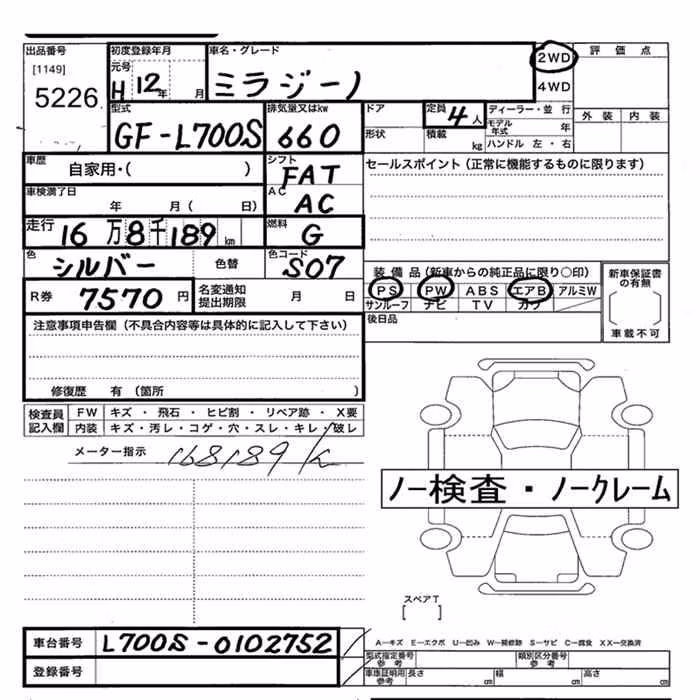 出品番号 初度登録年月 車名・グレード 2WD 評価点
[1149] 元号 H 12年 月 ミラジーノ 4WD
5226 型式 排気量又はkw ドア 定員 4人 ディーラー・並行 外装 内装
GF-L700S 660 形状 積載 kg モデル年式 年
ハンドル 左・右
車歴 自家用・( ) シフト FAT セールスポイント(正常に機能するものに限ります)
車検満了日 年 月 ( 日) AC AC
走行 16万8千189km 燃料 G
色 シルバー 色替 色コード S07 装備品(新車からの純正品に限り○印) 新車保証書の有無
R券 7570円 名変通知提出期限 月 日 PS PW ABS エアB アルミW
サンルーフ ナビ TV カワ
[ ]
車載不可
注意事項申告欄(不具合内容等は具体的に記入して下さい) 後日品
修復歴 有 (箇所 )
検査員記入欄 FW キズ・飛石・ヒビ割・リペア跡・X要
内装 キズ・汚レ・コゲ・穴・スレ・キレ・破レ
メーター指示 168189 K
ノー検査・ノークレーム
スペアT
[ ]
車台番号 L700S-0102752 A-キズ E-エクボ U-凹み W-補修跡 S-サビ C-腐食 XX-交換済
登録番号 型式指定番号 参考 類別区分番号 参考
車庫証明用 参考 長さ cm 幅 cm 高さ cm